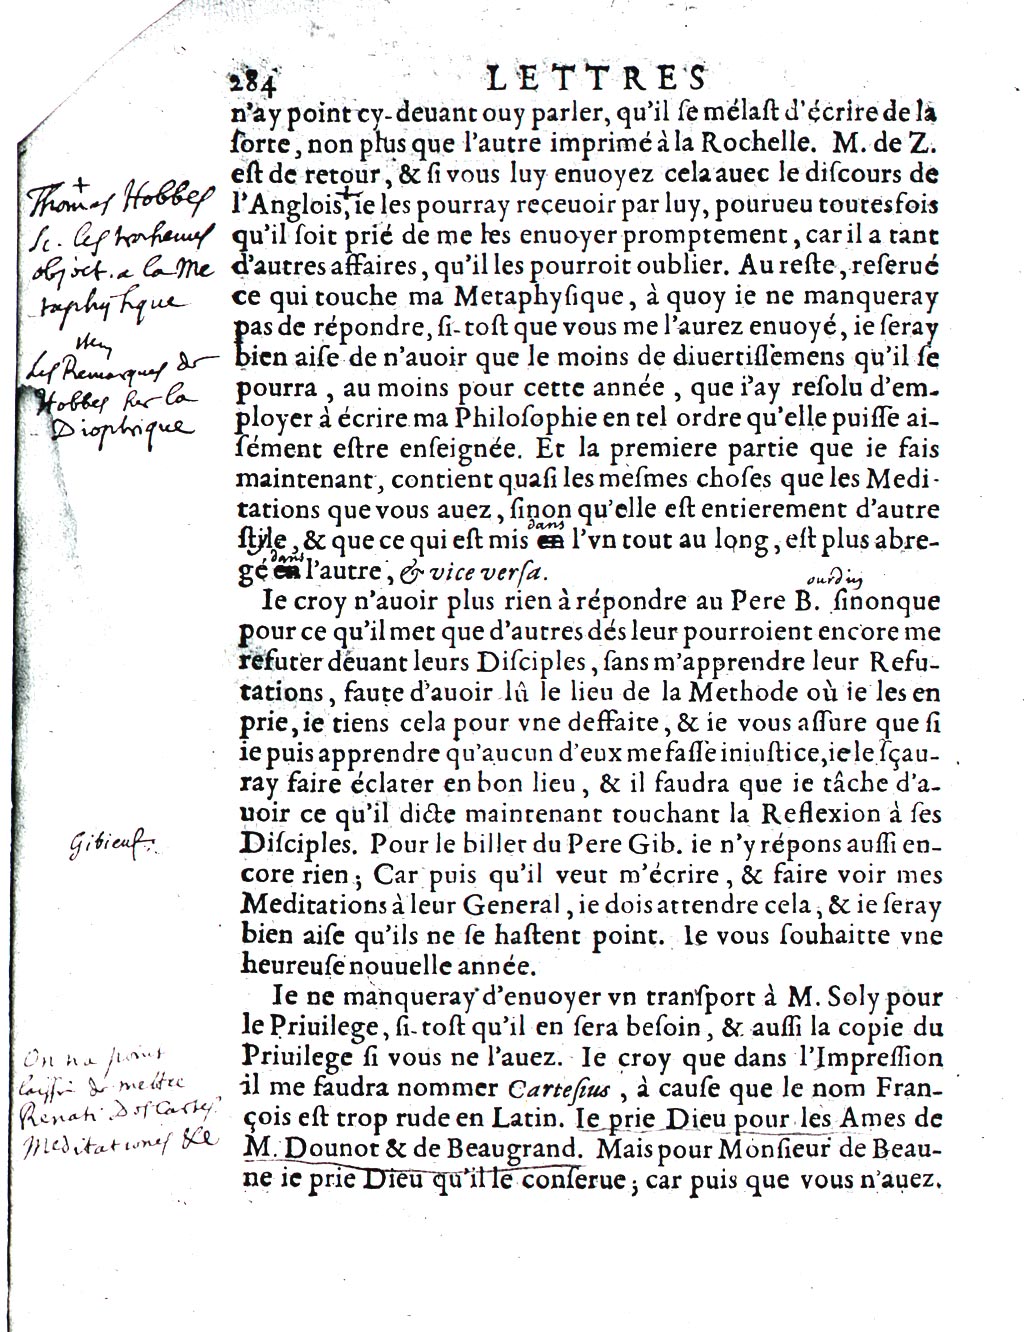 284 LETTRES
n'ay point cy-deuant ouy parler, qu'il ſe mélaſt d'écrire de la
ſorte, non plus que l'autre imprimé à la Rochelle. M. de Z.
eſt de retour, & ſi vous luy enuoyez cela auec le diſcours de
l'Anglois, + ie les pourray receuoir par luy, pourueu toutesfois
qu'il ſoit prié de me les enuoyer promptement, car il a tant
d'autres affaires, qu'il les pourroit oublier. Au reſte, reſerué
ce qui touche ma Metaphyſique, à quoy ie ne manqueray
pas de répondre, ſi-toſt que vous me l'aurez enuoyé, ie ſeray
bien aiſe de n'auoir que le moins de diuertiſſemens qu'il ſe
pourra, au moins pour cette année, que i'ay reſolu d'em-
ployer à écrire ma Philoſophie en tel ordre qu'elle puiſſe ai-
ſément eſtre enſeignée. Et la premiere partie que ie fais
maintenant, contient quaſi les meſmes choſes que les Medi-
tations que vous auez, ſinon qu'elle eſt entierement d'autre
dans
ſtyle, & que ce qui eſt mis en l'vn tout au long, eſt plus abre-
dans
gé en l'autre, & vice verſa.
ourdin
Ie croy n'auoir plus rien à répondre au Pere B. ſinon que
pour ce qu'il met que d'autres dés leur pourroient encore me
refuter deuant leurs Diſciples, ſans m'apprendre leur Refu-
tations, faute d'auoir lû le lieu de la Methode où ie les en
prie, ie tiens cela pour vne deffaite, & ie vous aſſure que ſi
ie puis apprendre qu'aucun d'eux me faſſe iniuſtice, ie le ſçau-
ray faire éclater en bon lieu, & il faudra que ie tâche d'a-
uoir ce qu'il dicte maintenant touchant la Reflexion à ſes
Diſciples. Pour le billet du Pere Gib. ie n'y répons auſſi en-
core rien; Car puis qu'il veut m'écrire, & faire voir mes
Meditations à leur General, ie dois attendre cela, & ie ſeray
bien aiſe qu'ils ne ſe haſtent point. Ie vous ſouhaitte vne
heureuſe nouuelle année.
Ie ne manqueray d'enuoyer vn tranſport à M. Soly pour
le Priuilege, ſi-toſt qu'il en ſera beſoin, & auſſi la copie du
Priuilege ſi vous ne l'auez. Ie croy que dans l'Impreſſion
il me faudra nommer Carteſius, à cauſe que le nom Fran-
çois eſt trop rude en Latin. Ie prie Dieu pour les Ames de
M. Dounot & de Beaugrand. Mais pour Monſieur de Beau-
ne ie prie Dieu qu'il le conſerue; car puis que vous n'auez.
+
Thomas Hobbes
Sc. les troisiemes
object. a la Me
taphysique
Item
Les Remarques de
Hobbes sur la
Dioptrique
Gibieuf.
On n'a point
laissé de mettre
Renati Des Cartes
Meditationes &c